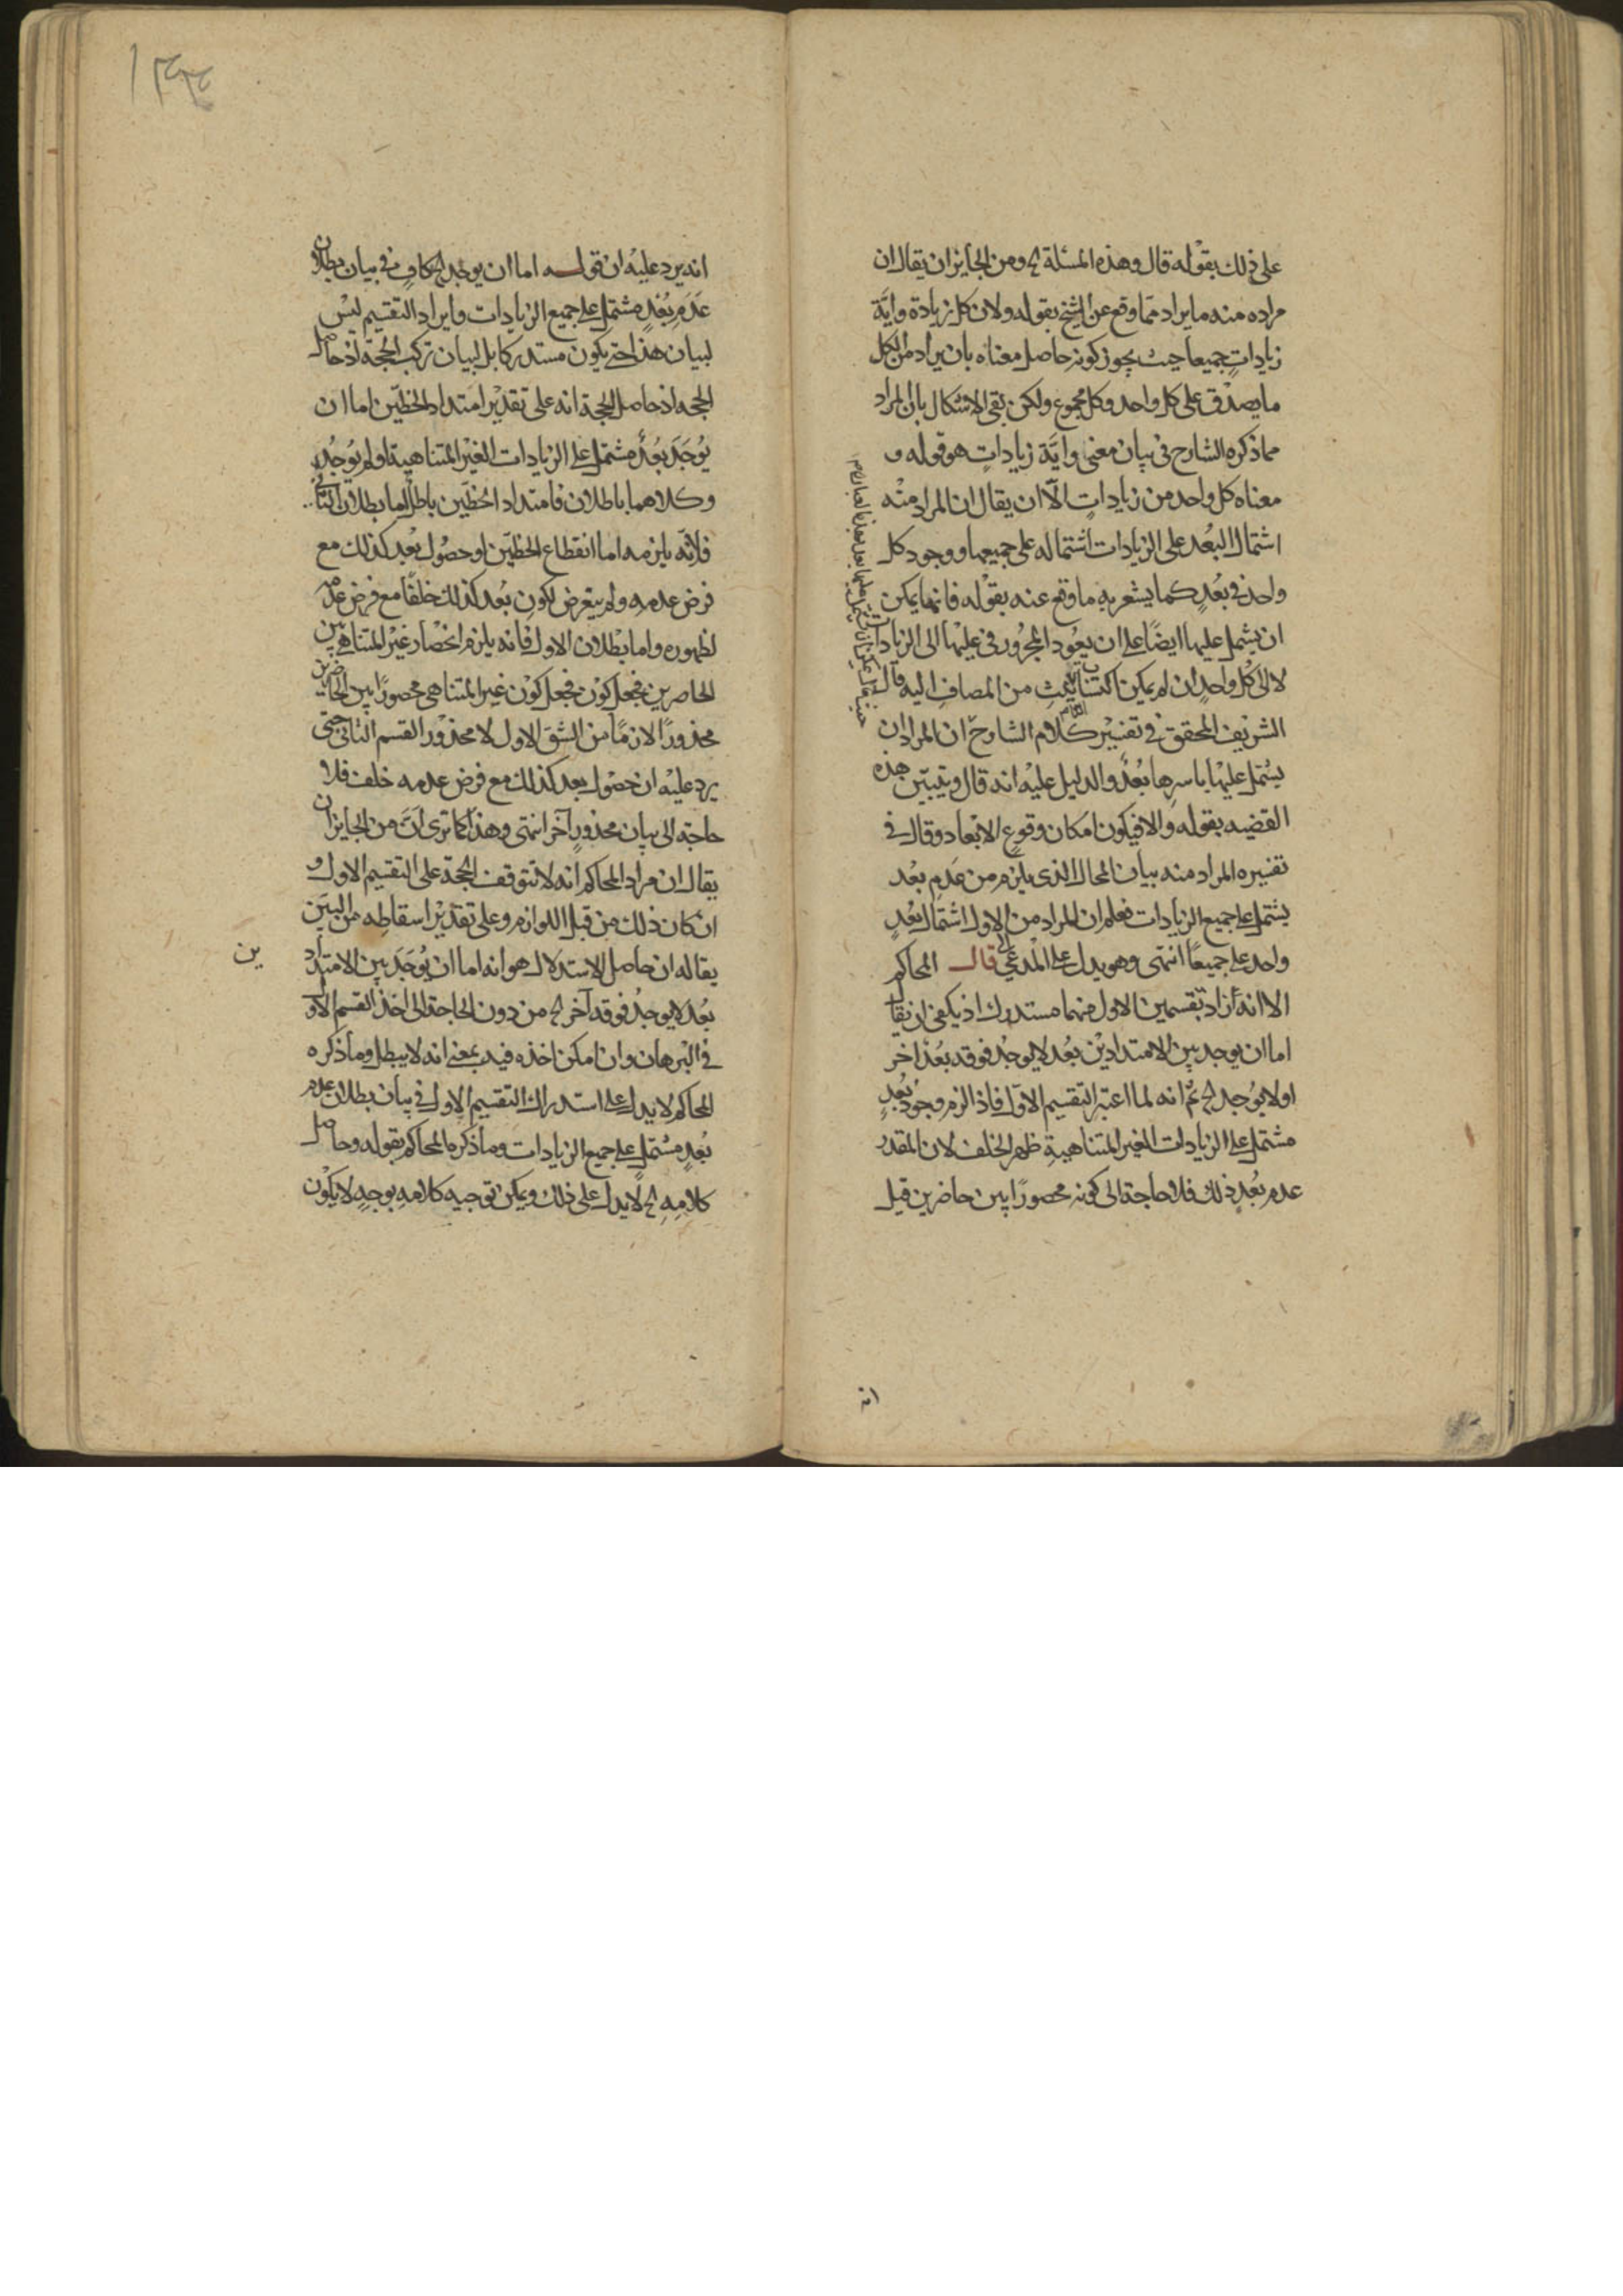 على ذلك بقوله قال وهذه المسئلة ح ومن الجايز ان يقال ان
مراده منه ما يراد مما وقع عن الشيخ بقوله ولان كل زيادة واية
زيادات جميعا حيث يجوز كونه حاصل معناه بان يراد من الكل
ما يصدق على كل واحد وكل مجموع ولكن بقى الاشكال بان المراد
مما ذكره الشارح في بيان معنى واية زيادات هو قوله و
معناه كل واحد من زيادات الا ان يقال ان المراد منه
اشتمال البعد على الزيادات اشتماله على جميعها ووجود كل
واحد في بعد كما يشعر به ما وقع عنه بقوله فانها يمكن
ان يشمل عليها ايضا على ان يعود المجرور في عليها الى الزيادات
لا الى كل واحد ان لم يمكن اكتساب التانيث من المضاف اليه قال
الشريف المحقق في تفسير كلام الشارح ان المراد ان
يشتمل عليها باسرها بعد والدليل عليه انه قال ويتبين هذه
القضيه بقوله والا فيكون امكان وقوع الابعاد وقال في
تفسيره المراد منه بيان المحال الذى يلزم من عدم بعد
يشتمل على جميع الزيادات فعلم ان المراد من الاول اشتمال بعد
واحد على جميعا انتهى وهو يدل على المدعى قال المحاكم
الا انه زاد تقسمين الاول منهما مستدرك اذ يكفى ان يقال
اما ان يوجد بين الامتدادين بعد لا يوجد فوقه بعد اخر
او لا يوجد ح ثم انه لما اعتبر التقسيم الاول فاذا لزم وجود بعد
مشتمل على الزيادات الغير المتناهية ظهر الخلف لان المقدر
عدم بعد ذلك فلا حاجة الى كونه محصورا بين حاضرين قيل
انه يرد عليه ان قوله اما ان يوجد ح كاف في بيان بطلان
عدم بعد مشتمل على جميع الزيادات وايراد التقسيم ليس
لبيان هذا حتى يكون مستدركا بل لبيان تركب الحجة اذ حاصل
الحجه اذ حاصل الحجة انه على تقدير امتداد الخطين اما ان
يوجد بعد مشتمل على الزيادات الغير المتناهية او لم يوجد
وكلاهما باطلان فامتداد الخطين باطل اما بطلان الثانى
فلانه يلزمه اما انقطاع الخطين او حصول بعد كذلك مع
فرض عدمه ولم يتعرض لكون بعد كذلك خلفا مع فرض عدمه
لظهوره واما بطلان الاول فانه يلزم انحصار غير المتناهى بين
الحاصرين فجعل كون فجعل كون غير المتناهى محصورا بين الحاضرين
محذورا لازما من الشق الاول لا محذور القسم الثانى حتى
يرد عليه ان حصول بعد كذلك مع فرض عدمه خلف فلا
حاجته الى بيان محذور آخر انتهى وهذا كما ترى لان من الجايز ان
يقال ان مراد المحاكم انه لا تتوقف الحجة على التقسيم الاول و
ان كان ذلك من قبل اللوازم وعلى تقدير اسقاطه من البين
يقال له ان حاصل الاستدلال هو انه اما ان يوجد بين الامتداد
ين
بعد لا يوجد فوقه آخر ح من دون الحاجة الى اخذ القسم الاول
في البرهان وان امكن اخذه فيه بمعنى انه لا يبطل وما ذكره
المحاكم لا يدل على استدراك التقسيم الاول في بيان بطلان عدم
بعد مشتمل على جميع الزيادات وما ذكره المحاكم بقوله وحاصل
كلامه ح لا يدل على ذلك ويمكن توجيه كلامه بوجه لا يكون